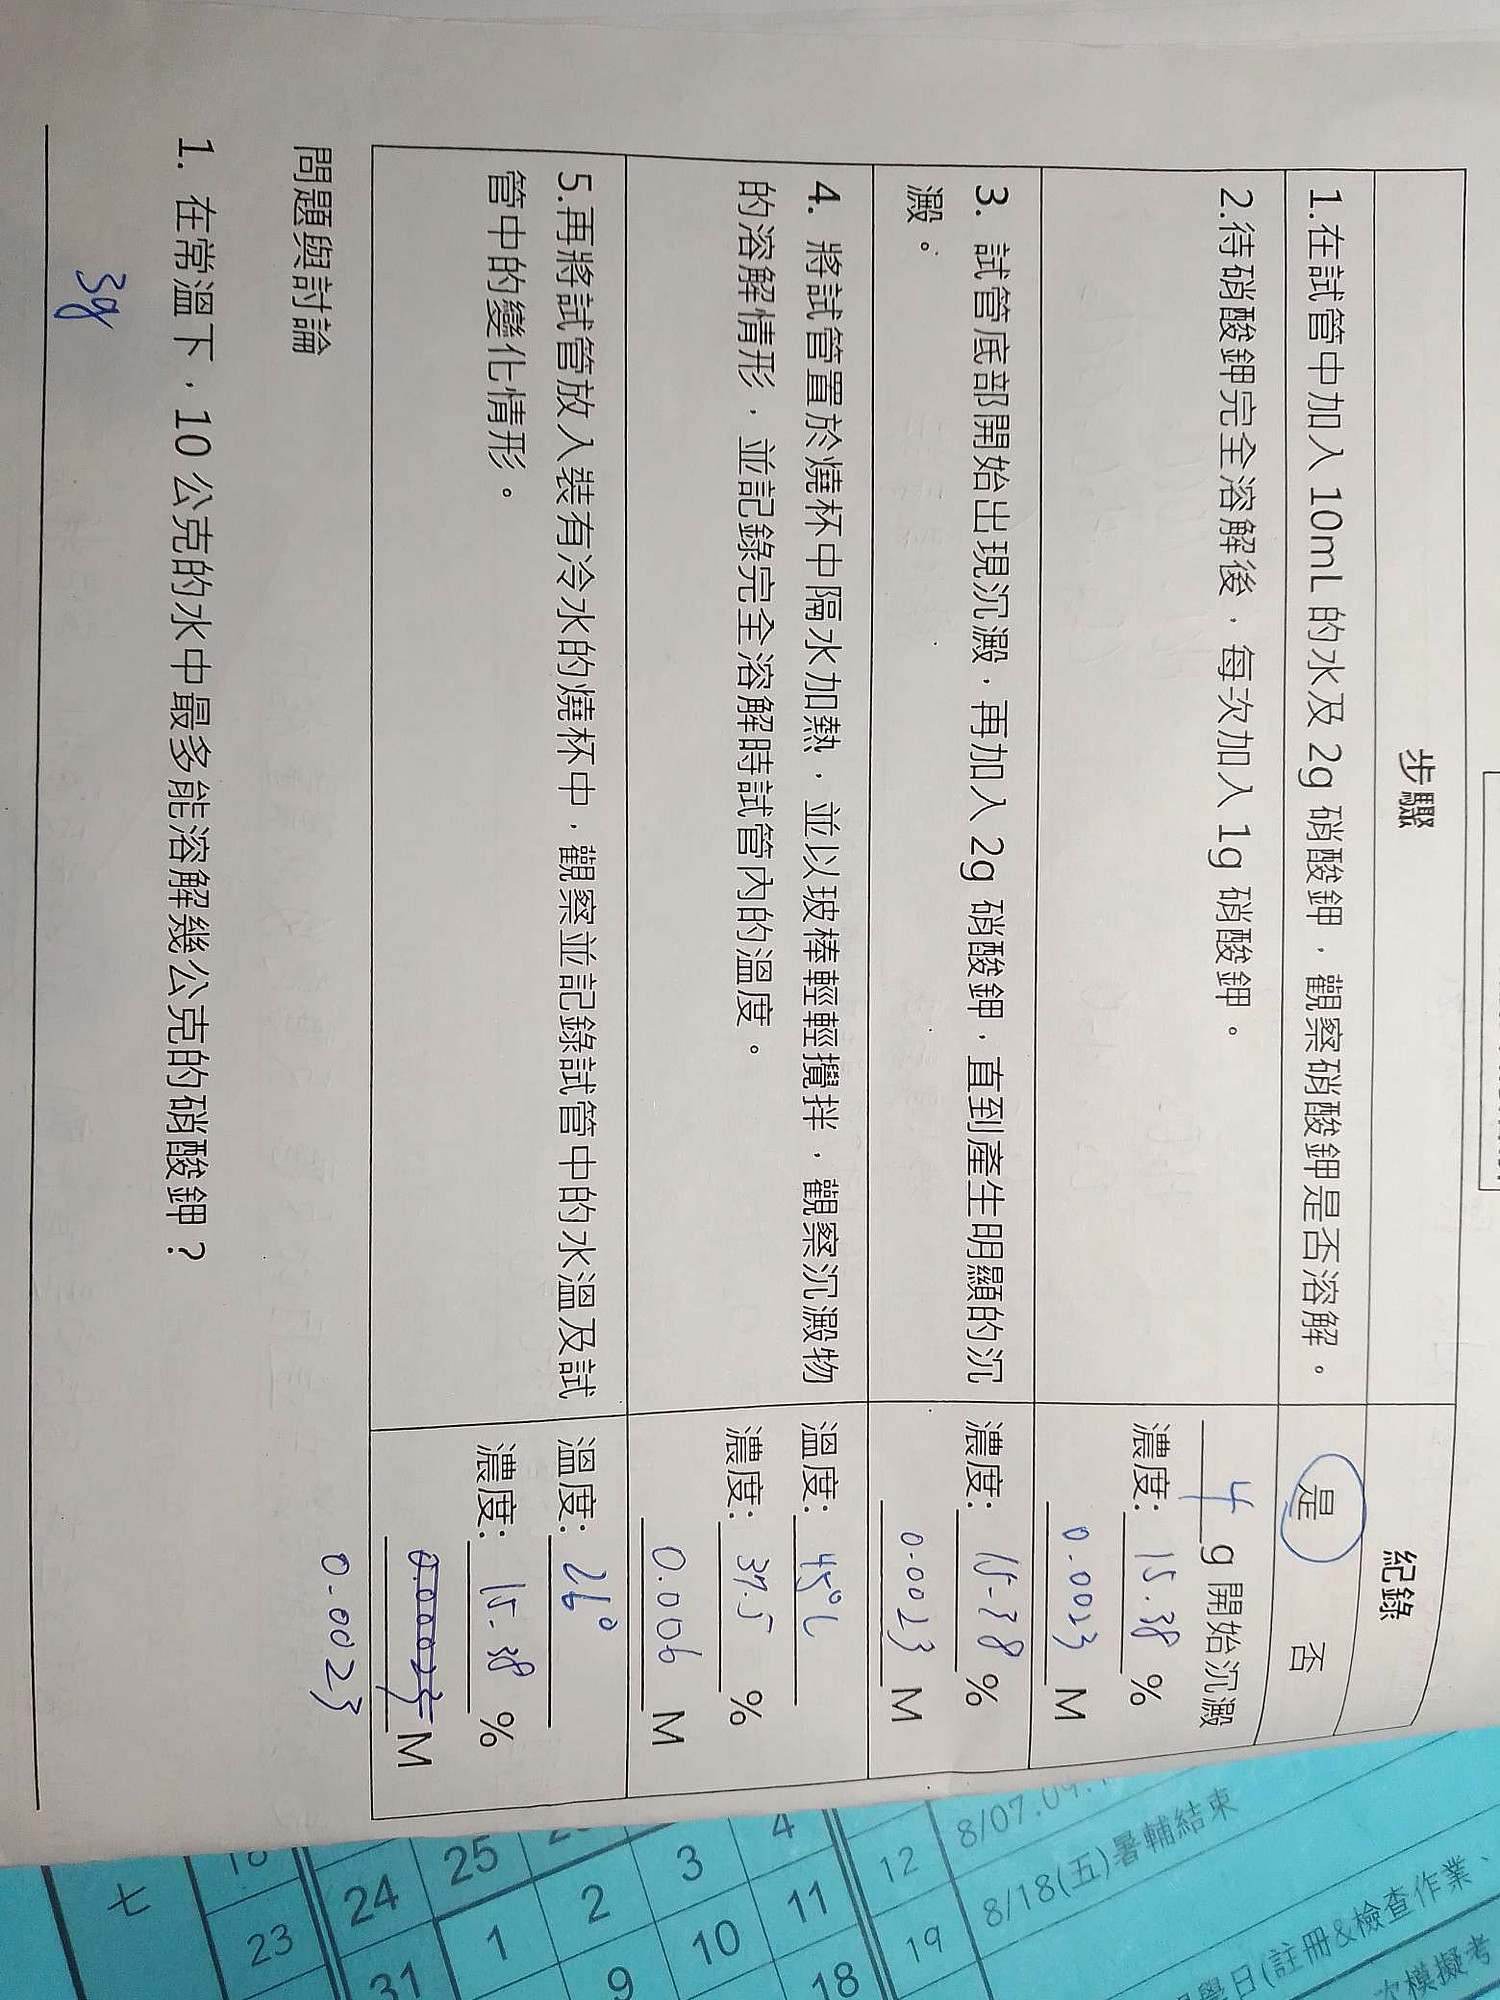 步驟
紀錄
1.在試管中加入 10mL 的水及 2g 硝酸鉀，觀察硝酸鉀是否溶解。
是 否
2.待硝酸鉀完全溶解後，每次加入 1g 硝酸鉀。
4 g 開始沉澱
濃度: 15.38 %
0.0023 M
3. 試管底部開始出現沉澱，再加入 2g 硝酸鉀，直到產生明顯的沉
澱。
濃度: 15.38 %
0.0023 M
4. 將試管置於燒杯中隔水加熱，並以玻棒輕輕攪拌，觀察沉澱物
的溶解情形，並記錄完全溶解時試管內的溫度。
溫度: 45°C
濃度: 37.5 %
0.006 M
5.再將試管放入裝有冷水的燒杯中，觀察並記錄試管中的水溫及試
管中的變化情形。
溫度: 26°
濃度: 15.38 %
M
0.0023
問題與討論
1. 在常溫下，10 公克的水中最多能溶解幾公克的硝酸鉀？
3g
七
16
23
24
31
25
1
2
9
3
10
4
11
18
12
19
8/07.09.
8/18(五)暑輔結束
學日(註冊&檢查作業、
次模擬考